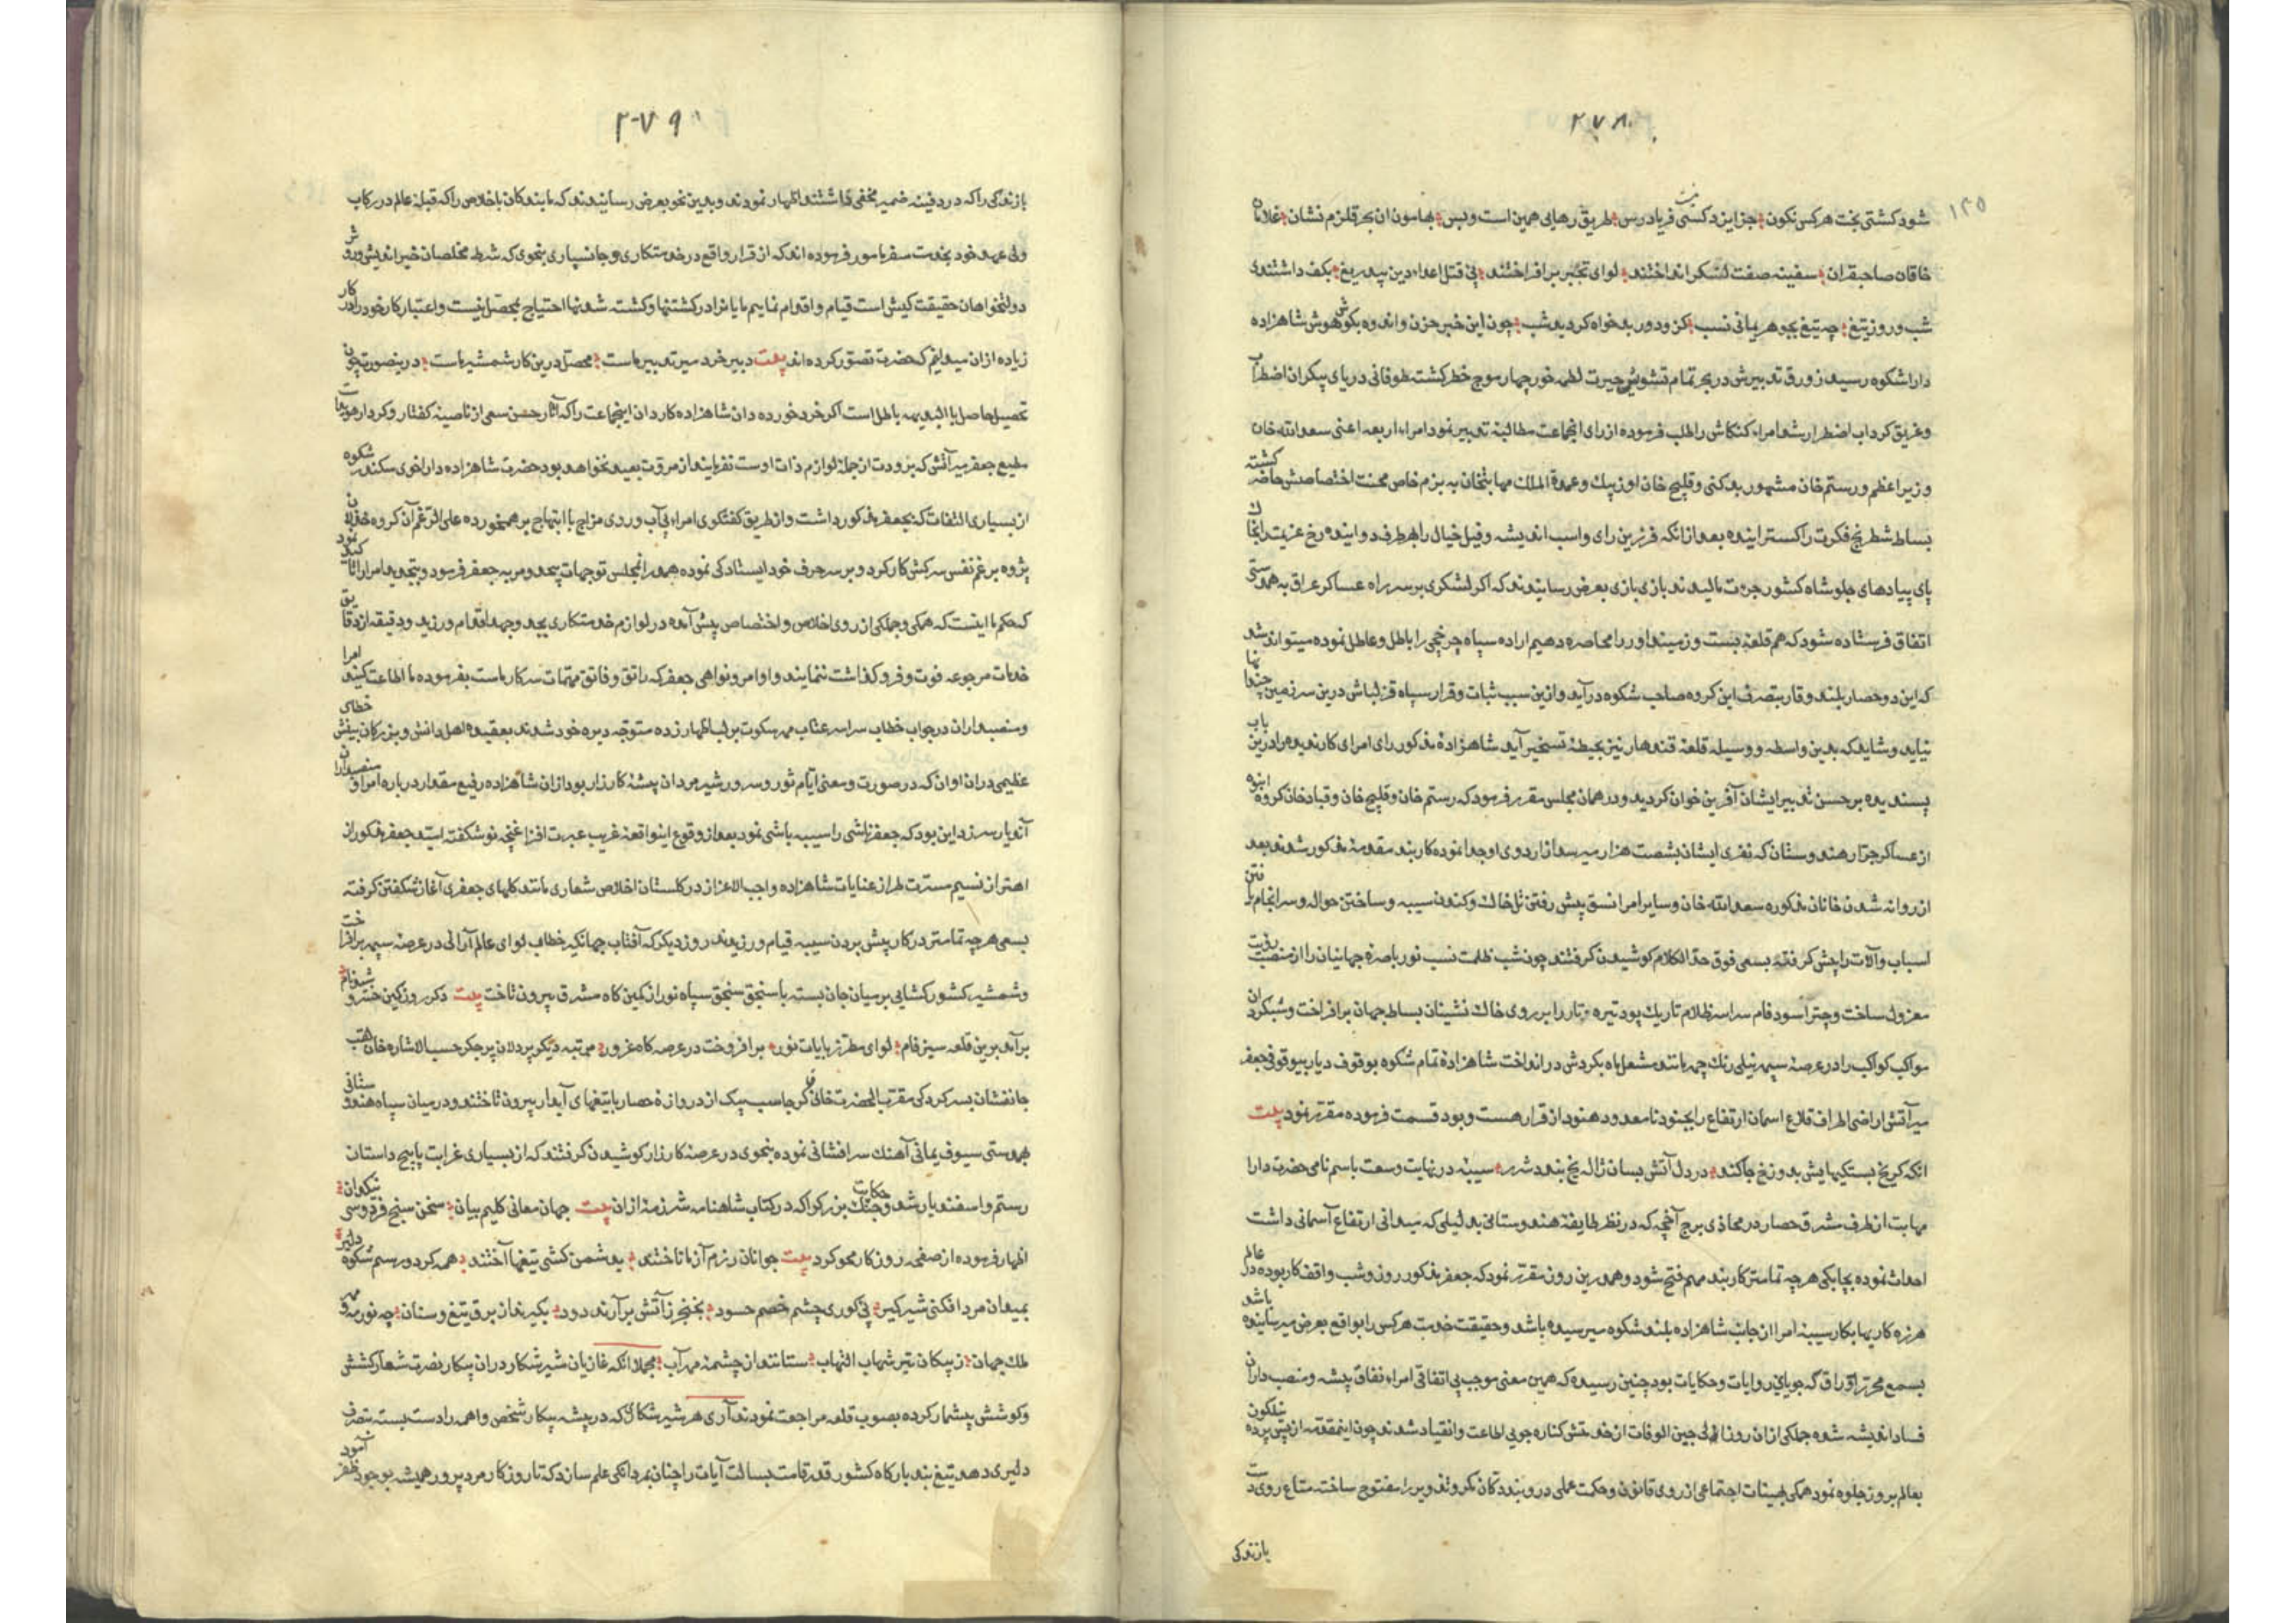 ۲۷۸
۱۴۵
شود کشتی بخت هر کس نکون جز ایزد کسی فریادرس طریق رهایی همین است و بس بهامون ان بحر قلزم نشان غلامان
خاقان صاحبقران سفینه صفت لنکر انداختند لوای تجبر برافراختند پی قتل اعداء دین بیدریغ بکف داشتندی
شب و روز تیغ چه تیغ بجوهر یمانی نسب کزو دور بدخواه کردید شب چون این خبر حزن و اندوه بکوش هوش شاهزاده
داراشکوه رسید زورق تدبیرش در بحر تمام تشویش حیرت لطمه خور چهار موج خطر کشت طوفانی دریای بیکران اضطراب
و غریق کرداب اضطرار شد امراء کنکاش را طلب فرموده از رای انجماعت مطالبة تدبیر نمود امراء اربعه اعنی سعدالله خان
وزیر اعظم و رستم خان مشهور بدکنی و قلیج خان اوزبک و عمدة الملک مهابتخان به بزم خاص محنت اختصاصش حاضر کشته
بساط شطرنج فکرت را کسترانیده بعد از انکه فرزین رای و اسب اندیشه و فیل خیال را بهر طرف دوانیده رخ عزیمت را بخاک
پای پیادهای جلو شاه کشور جرءت مالیدند بازی بازی بعرض رسانیدند که اکر لشکری بر سر راه عساکر عراق به همدستی
اتفاق فرستاده شود که هم قلعۀ بست و زمینداور را محاصره دهیم اراده سپاه چرخچی را باطل و عاطل نموده میتواند شد
که این دو حصار بلند وقار بتصرف این کروه صاحب شکوه درآید و ازین سبب ثبات و قرار سپاه قزلباش درین سرزمین چندان بها
نیابد و شاید که بدین واسطه و وسیله قلعۀ قندهار نیز بحیطۀ تسخیر آید شاهزادۀ مذکور رای امرای کاردیده را درین باب
پسندیده بر حسن تدبیر ایشان آفرین خوان کردید و در همان مجلس مقرر فرمود که رستم خان و قلیج خان و قباد خان کروه انبوه
از عساکر جرار هندوستان که نفری ایشان بشصت هزار میرسد از اردوی او جدا نموده کاربند مقدمۀ مذکور شدند بعد
از روانه شدن خانان مذکوره سعدالله خان و سایر امرا نسق پیش رفتن تل خاک و کندن سیبه و ساختن حواله و سرانجام یافتن
اسباب و آلات را پیش کرفته بسعی فوق حد الکلام کوشیدن کرفتند چون شب ظلمت نسب نور باصرۀ جهانیان را از منصب رؤیت
معزول ساخت و چتر آسود فام سراسر ظلام تاریک پود تیره و تار را بر روی خاک نشینان بساط جهان برافراخت و شبکردان
مواکب کواکب را در عرصۀ سپهر نیلی رنک چهر مانند مشعل ماه بکردش درانداخت شاهزادۀ تمام شکوه بوقوف دیار بیوقوفی جعفر
میر آتش اراضی اطراف قلاع اسمان ارتفاع را بجنود نامعدود هنود از قرار هست و بود قسمت فرموده مقرر نمود بیت
انکه کر یخ بستکیهایش بدوزخ جا کند در دل آتش بسان ژاله یخ بندد شرر سیبۀ در نهایت وسعت باسم نامی حضرت دارا
مهابت از طرف مشرق حصار در محاذی برج آقچه که در نظر طایفۀ هندوستانی بدلیلی که میدانی ارتفاع آسمانی داشت
احداث نموده بچابکی هر چه تمامتر کاربند مهم فتح شود و همدرین روز مقرر نمود که جعفر مذکور روز و شب واقف کار بوده در عالم
هرزه کاریها بکار سیبۀ امرا از جانب شاهزاده بلند شکوه میرسیده باشد و حقیقت خدمت هر کس را بواقع بعرض میرسانیده باشد
بسمع محرر اوراق که جویای روایات و حکایات بود چنین رسیده که همین معنی موجب بی اتفاقی امراء نفاق پیشه و منصب داران
فساد اندیشه شده جملکی از ان روز الی حین الوفات از خدمتش کناره جویی اطاعت و انقیاد شدند چون اینمقدمه از پس پرده نیلکون
بعالم بروز جلوه نمود همکی بهیئات اجتماعی از روی قانون و حکمت عملی در وبند دکان مکر و تدویر را مفتوح ساخته متاع روی دست
بازندکی
۲۷۹
بازندکی را که در دفینۀ ضمیر مخفی داشتند اظهار نمودند و بدین نحو بعرض رسانیدند که ما بندکان با خلاص را که قبلۀ عالم در رکاب
ولی عهد خود بخدمت سفر مامور فرموده اند که از قرار واقع در خدمتکاری و جانسپاری بنحوی که شرط مخلصان خیراندیش و روش
دولتخواهان حقیقت کیش است قیام و اقدام نماییم ما یانرا در کشتنها و کشته شدنها احتیاج بمحصل نیست و اعتبار کار خود را در کار
زیاده از ان میدانیم که حضرت تصور کرده اند بیت دبیر خرد میر تدبیر ماست محصل درین کار شمشیر ماست درینصورت چون
تحصیل حاصل بالبدیهه باطل است اکر خرد خورده دان شاهزاده کاردان اینجماعت را که آثار حسن سعی از ناصیۀ کفتار و کردار هویداست
مطیع جعفر میر آتش که برودت از جملۀ لوازم ذات اوست نفرمایند از مروت بعید نخواهد بود حضرت شاهزاده دارا خوی سکندر شکوه
از بسیاری التفات که بجعفر مذکور داشت و از طریق کفتکوی امراء بی آب و روی مزاج با ابتهاج برهمخورده علی الرغم آن کروه خذلان
پژوه برغم نفس سرکش کار کرد و بر سر حرف خود ایستادکی نموده همدر انمجلس توجهات بیحد و مر به جعفر فرمود و بتجدید امرا را تاکید نمود
که حکم ما اینست که همکی و جملکی از روی اخلاص و اختصاص پیش آمده در لوازم خدمتکاری بجد و جهد اقدام ورزید و دقیقه از دقایق
خدمات مرجوعه فوت و فروکذاشت ننمایند و اوامر و نواهی جعفر که راتق و فاتق مهمات سرکار ماست بفرموده ما اطاعت کنید امرا
و منصبداران در جواب خطاب سراسر عتاب مهر سکوت بر لب اظهار زده متوجه دیره خود شدند بعقیده اهل دانش و بزرکان بینش خطای
عظیمی در ان اوان که در صورت و معنی ایام ثور و سرور شیر مردان بیشۀ کارزار بود از ان شاهزاده رفیع مقدار در باره امرا و منصبداران
آندیار سر زد این بود که جعفر ناشی را سیبه باشی نمود بعد از وقوع اینواقعۀ غریب عبرت افزا غنچه نوشکفته امید جعفر مذکور از
اهتزاز نسیم مسرت طراز عنایات شاهزاده واجب الاعزاز در کلستان اخلاص شعاری مانند کلهای جعفری آغاز شکفتن کرفته
بسعی هر چه تمامتر در کار پیش بردن سیبه قیام ورزیدند روز دیکر که آفتاب جهانکیر خطاب لوای عالم آرائی در عرصۀ سپهر برافراخت
و شمشیر کشورکشایی بر میان جان بسته با سنجق سنجق سپاه نور از کمین کاه مشرق بیرون تاخت بیت دکر روز کین خسرو شبدفام
برآمد برین قلعه سبز فام لوای مطرز بایات نور برافروخت در عرصه کاه غرور مرتبه دیکر پردلان پرجکر حسب الاشاره خان
جانفشان بسرکردکی مقرب الحضرت خانی کرجاسب بیک از دروازۀ حصار با تیغهای آبدار بیرون تاختند و در میان سپاه هندوستانی
بهمدستی سیوف یمانی آهنک سرافشانی نموده بنحوی در عرصۀ کارزار کوشیدن کرفتند که از بسیاری غرابت پا بیج داستان
رستم و اسفندیار شد و حکایت جنک بزرکوا که در کتاب شاهنامه شرزمۀ از ان بیت جهان معانی کلیم بیان سخن سنج فردوسی نیکوان
اظهار فرموده از صفحۀ روزکار محو کرد بیت جوانان رزم آزما تاختند بدشمن کشی تیغها آختند همه کرد و رستم شکوه دلیر
بمیدان مردافکنی شیرکیر پی کوری چشم خصم حسود بخنجر ز آتش برآرند دود بکیرند از برق تیغ و سنان چه نور مه
ملک جهان ز پیکان تیر شهاب التهاب ستانند از چشمۀ مهر آب مجملا انکه غازیان شیر شکار در ان پیکار نصرت شعار کشش
و کوشش بیشمار کرده بصوب قلعه مراجعت نمودند آری هر شیر شکاری که در بیشه پیکار شخص واهمه را دست بسته بتصرف
دلیری دهد تیغ بند بارکاه کشور قدر قامت بسالت آیات را چنان بمردانکی علم سازد که تا روزکار مردپرور همیشه بوجود ظفر آمود